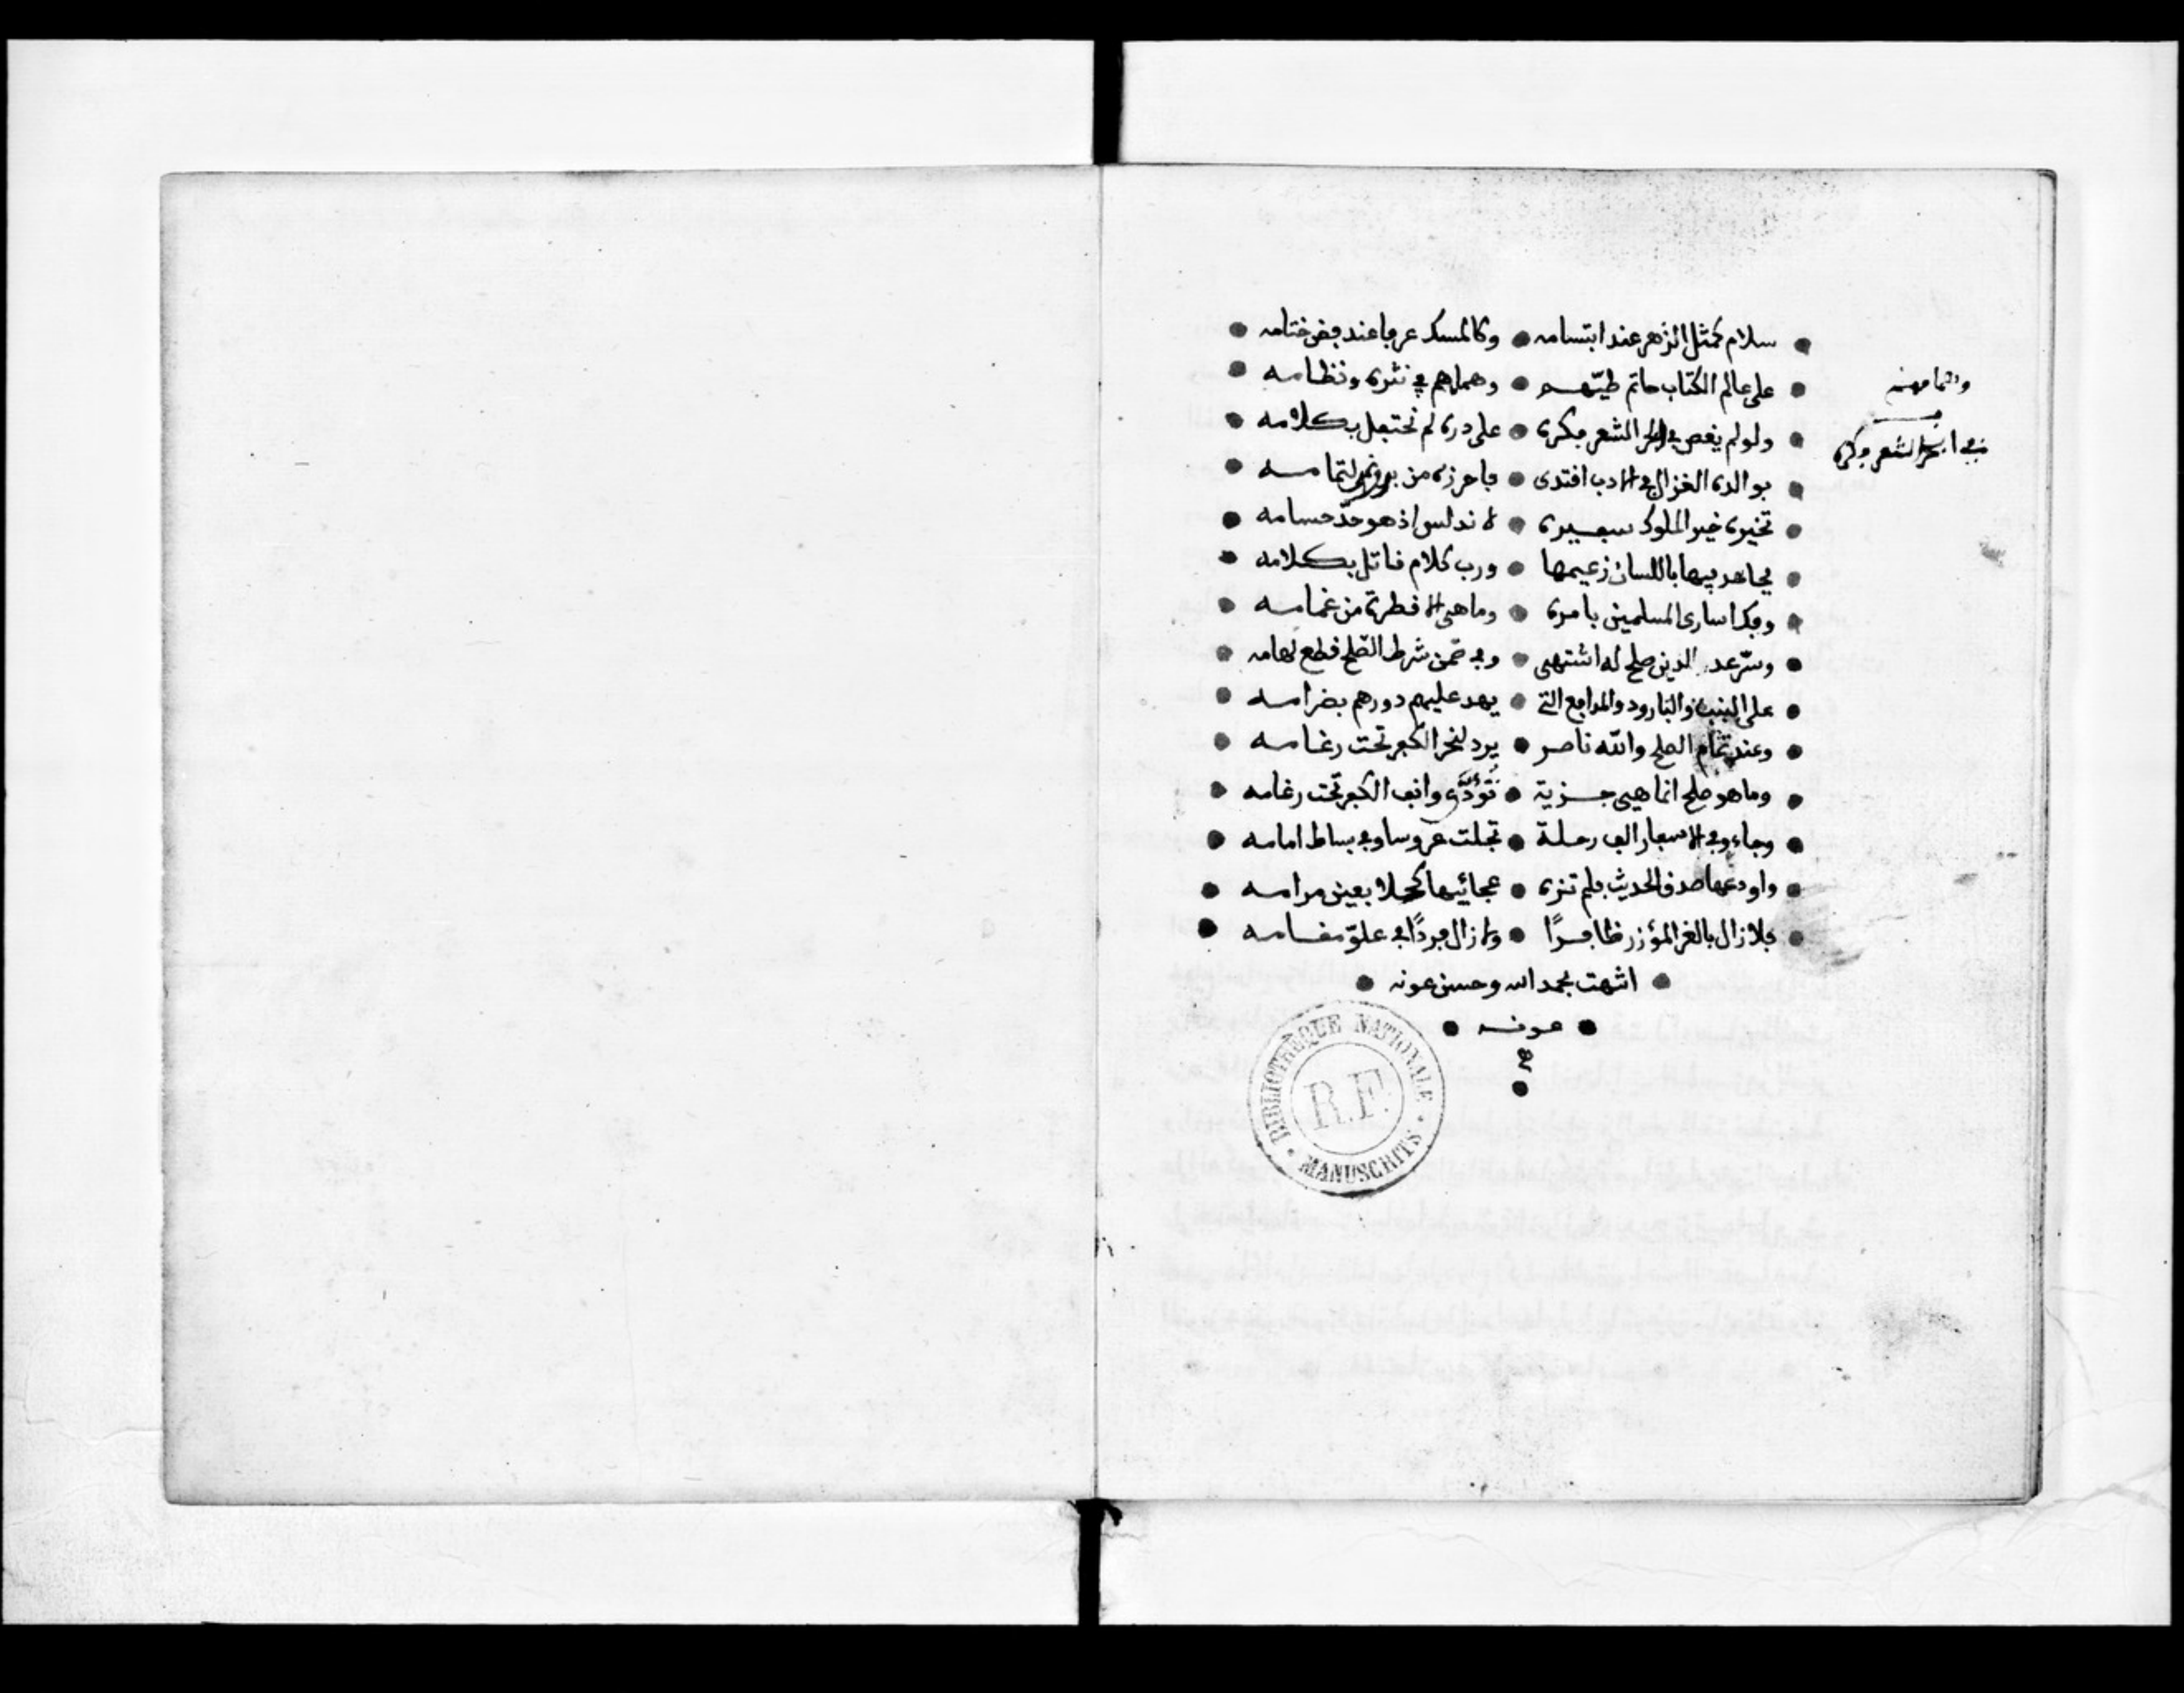 سلام كمثل الزهر عند ابتسامه • وكالمسك عرفا عند فض ختامه
على عالم الكتاب حاتم طيّهم • وهمامهم في نثره ونظامه
ولو لم يغص في ابحر الشعر فكره • على دره لم نحتفل بكلامه
في ابحر الشعر فكره
هو الدر الغزال في الادب اقتدى • فاحرزه من
تخيره خير الملوك سفيره • لاندلس إذ هو حدّ حسامه
يجاهد فيها باللسان زعيمها • ورب كلام قاتل بكلامه
وفك اسارى المسلمين بامره • وما هي الا قطرة من غمامه
وسرّ عد الدين صلح له اشتهى • وفي ضمن شرط الصّلح قطع لهامه
على البنب والبارود والمدافع التي • يهد عليهم دورهم بضرامه
وعند تمام الصلح والله ناصر • يرد لنحر الكفر تحت رغامه
وما هو صلح انما هي جزية • تؤدّى وانف الكفر تحت رغامه
وجاء وفي الاسفار الف رحلة • تجلت عروسا في بساط امامه
واودعها صدق الحديث فلم تزه • عجائبها كحلا بعين مرامه
فلا زال بالعز المؤزر ظافرًا • ولا زال فردًا في علوّ مقامه
انتهت بحمد الله وحسن عونه
عونه
BIBLIOTHÈQUE NATIONALE
R.F.
MANUSCRITS